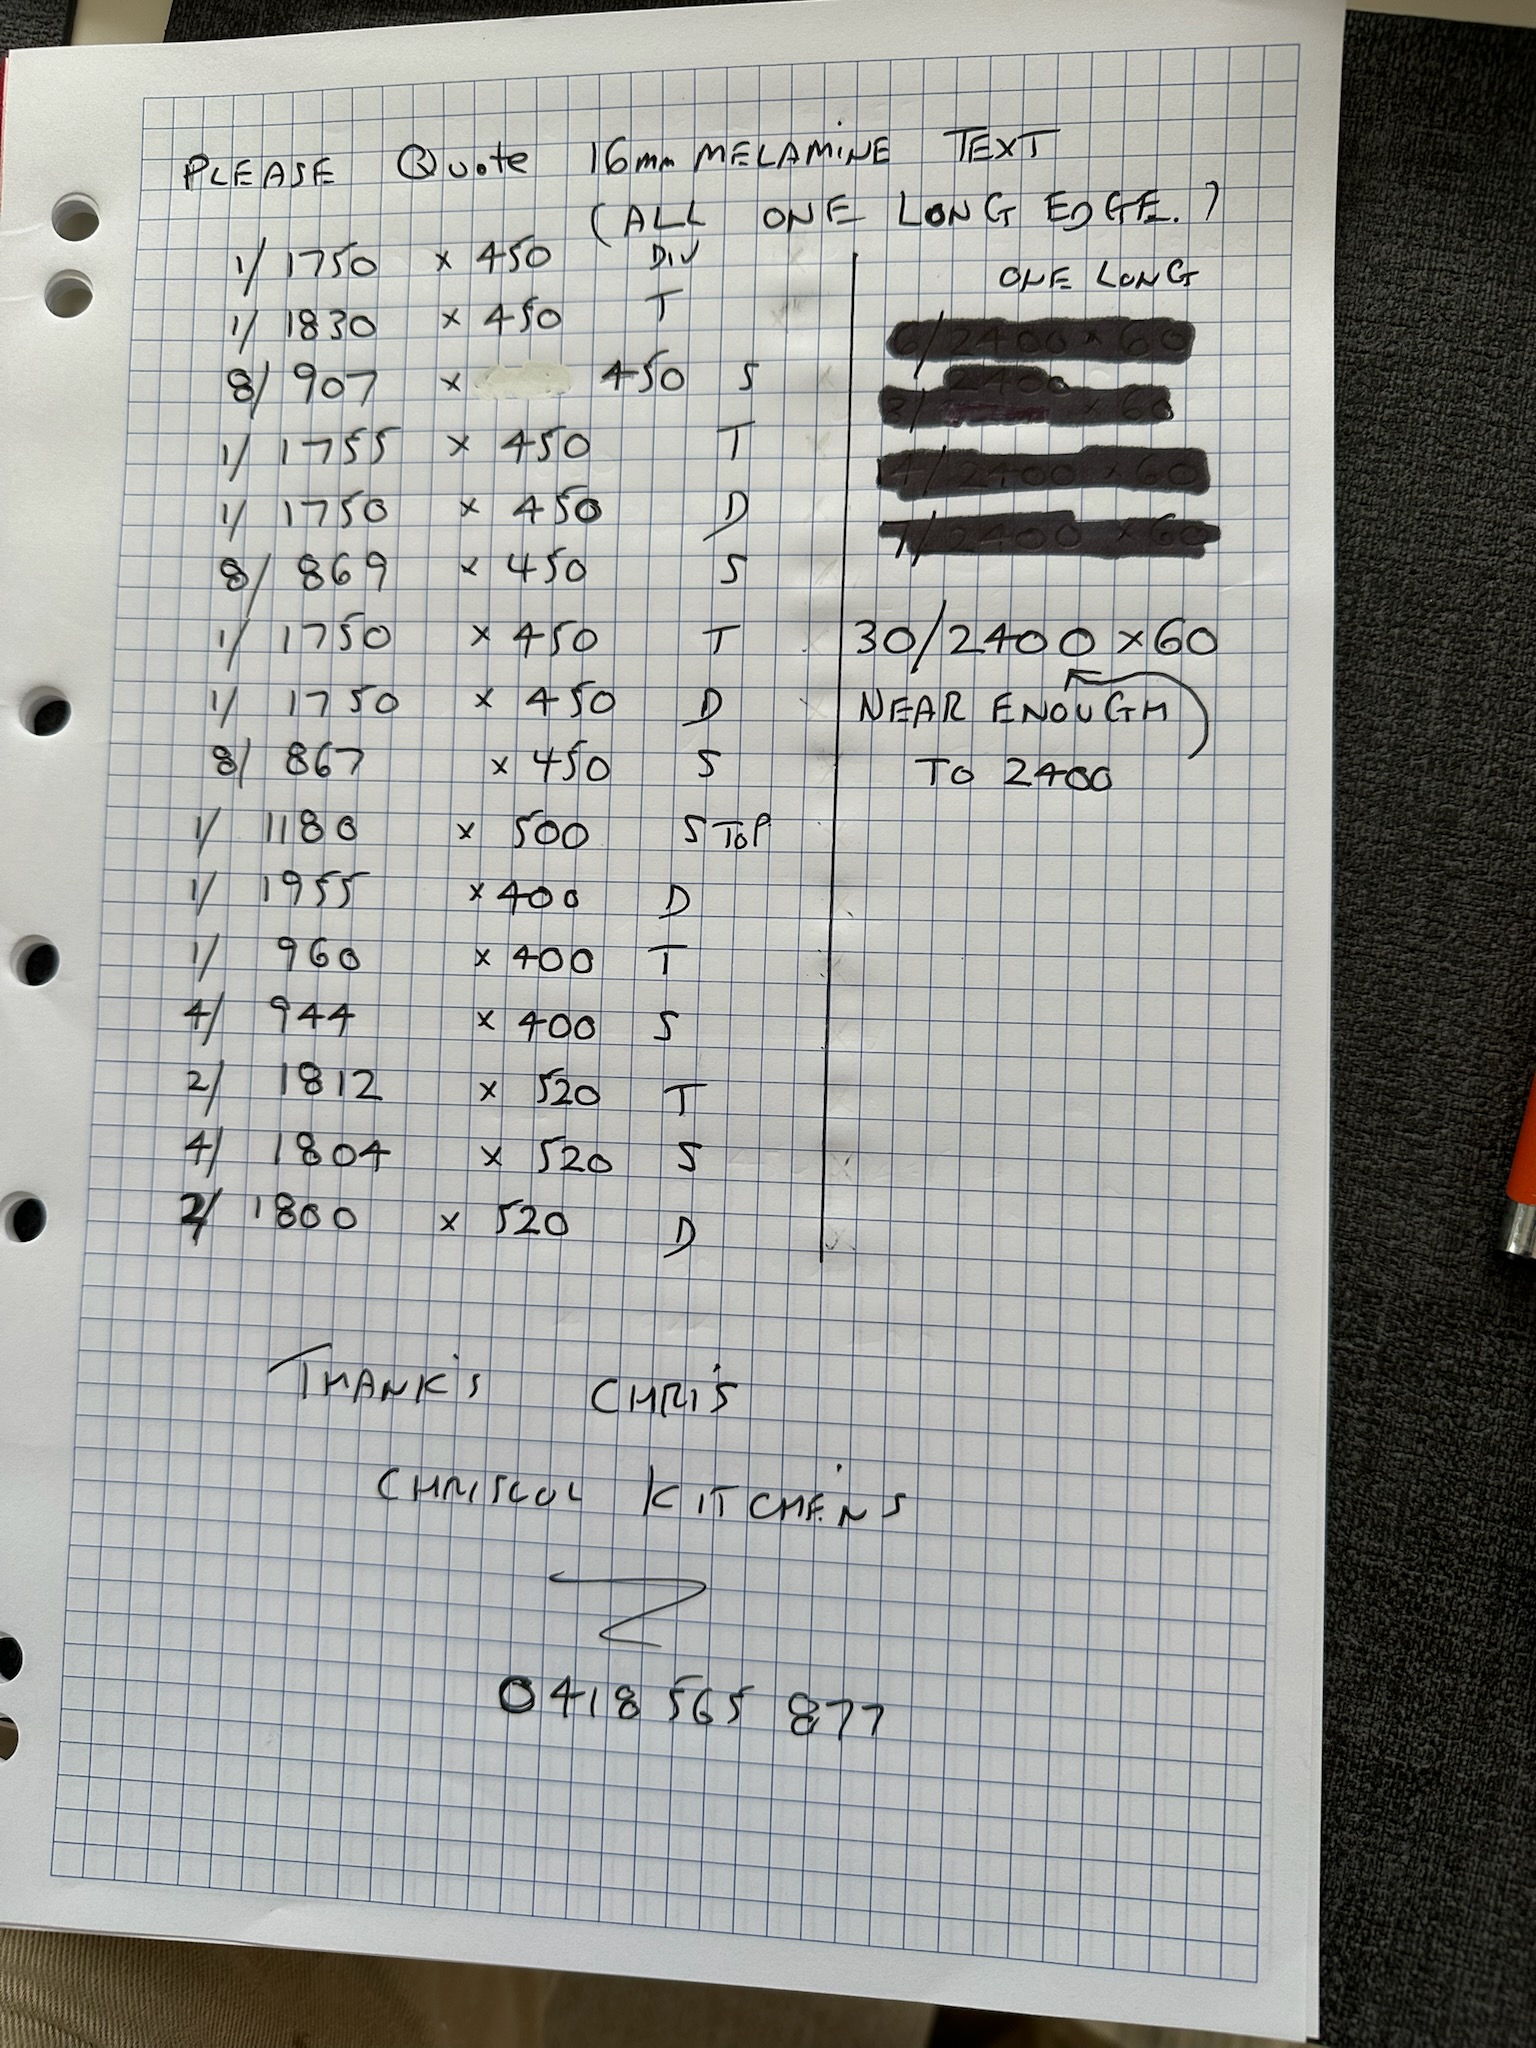 PLEASE Quote 16mm MELAMINE TEXT
(ALL ONE LONG EDGE.)
1/ 1750 x 450 DIV
1/ 1830 x 450 T
8/ 907 x 450 S
1/ 1755 x 450 T
1/ 1750 x 450 D
8/ 869 x 450 S
1/ 1750 x 450 T
1/ 1750 x 450 D
8/ 867 x 450 S
1/ 1180 x 500 S TOP
1/ 1955 x 400 D
1/ 960 x 400 T
4/ 944 x 400 S
2/ 1812 x 520 T
4/ 1804 x 520 S
2/ 1800 x 520 D
ONE LONG
6/2400 x 60
2400
3/ x 60
4/2400 x 60
7/2400 x 60
30/2400 x 60
NEAR ENOUGH
TO 2400
THANK'S CHRIS
CHRISCOL KITCHENS
0418 565 877